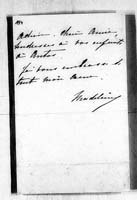 Adieu. Chère Amie,
tendresses à vos enfants
et
Je vous embrasse de
tout mon cœur.
Madeleine